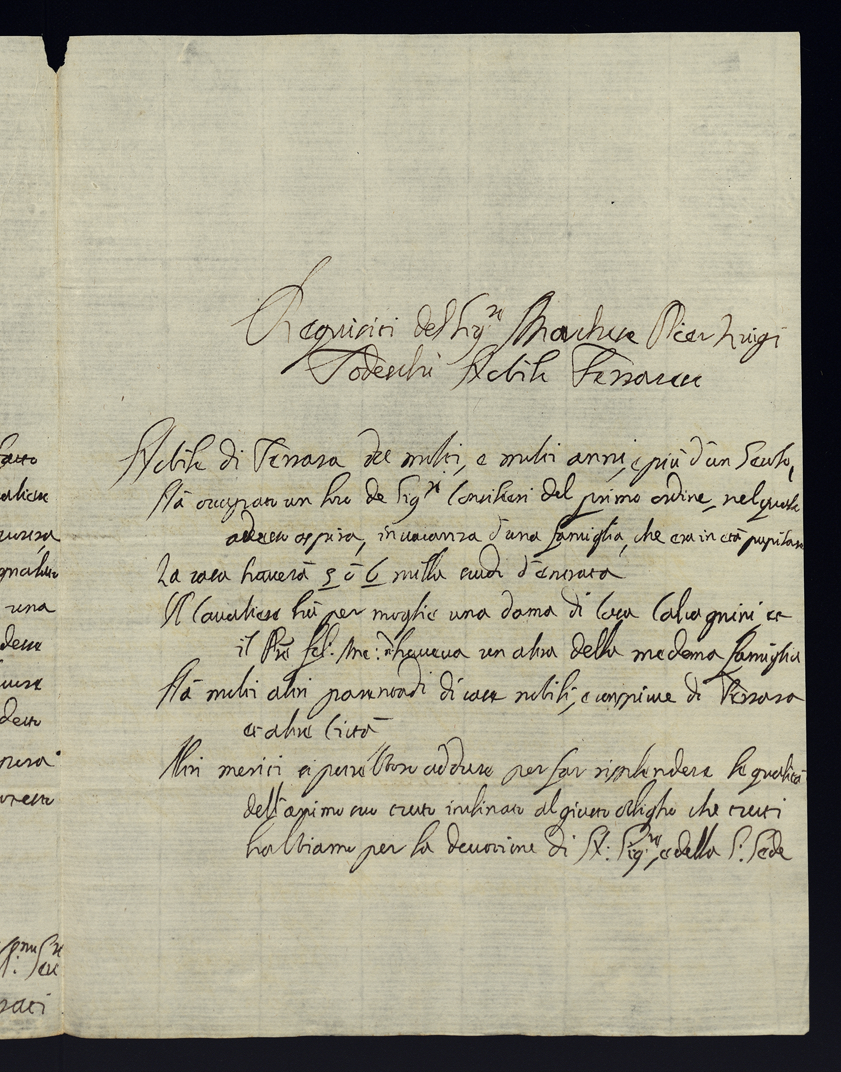 Requisiti del Sig.re Marchese Pier Luigi
Todeschi Nobile Ferrarese
Nobile di Ferrara de molti, e molti anni, e più d'un Secolo,
Hà occupato un loco de Sig.ri Consilieri del primo ordine, nel quale
adesso aspira, in vacanza d'una famiglia, che era in età pupillare
La casa haverà 5 ò 6 milla scudi d'entrata
Il Cavaliere hà per moglie una dama di Casa Calcagnini et
il fel: me: n'haveva un altra della medema famiglia
Hà molti altri parentadi di case nobili, e conspicue di Ferrara
et altre Città
Altri meriti si addure per far risplendere le qualità
dell'animo suo tutto inclinato al giusto obligho che tutti
habbiamo per la devotione di N: Sig.re, e della S. Sede